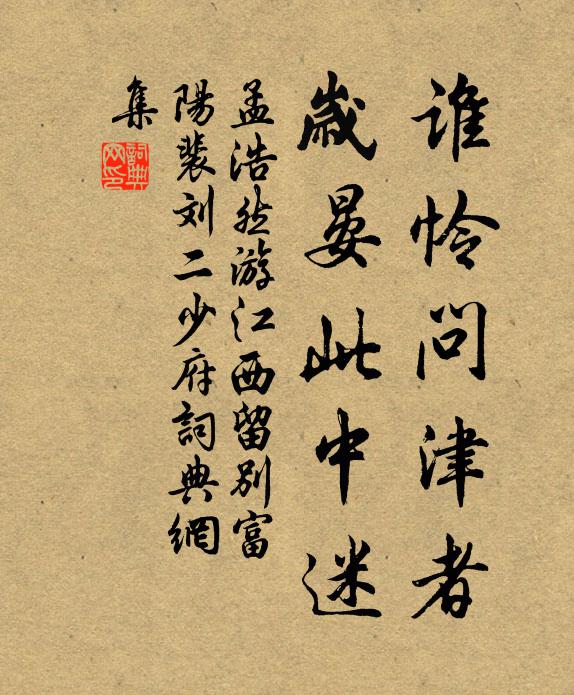 谁怜问津者
歳晏此中迷
孟浩然游江西留别富
陽裴刘二少府詞典網
集
詞典
网印